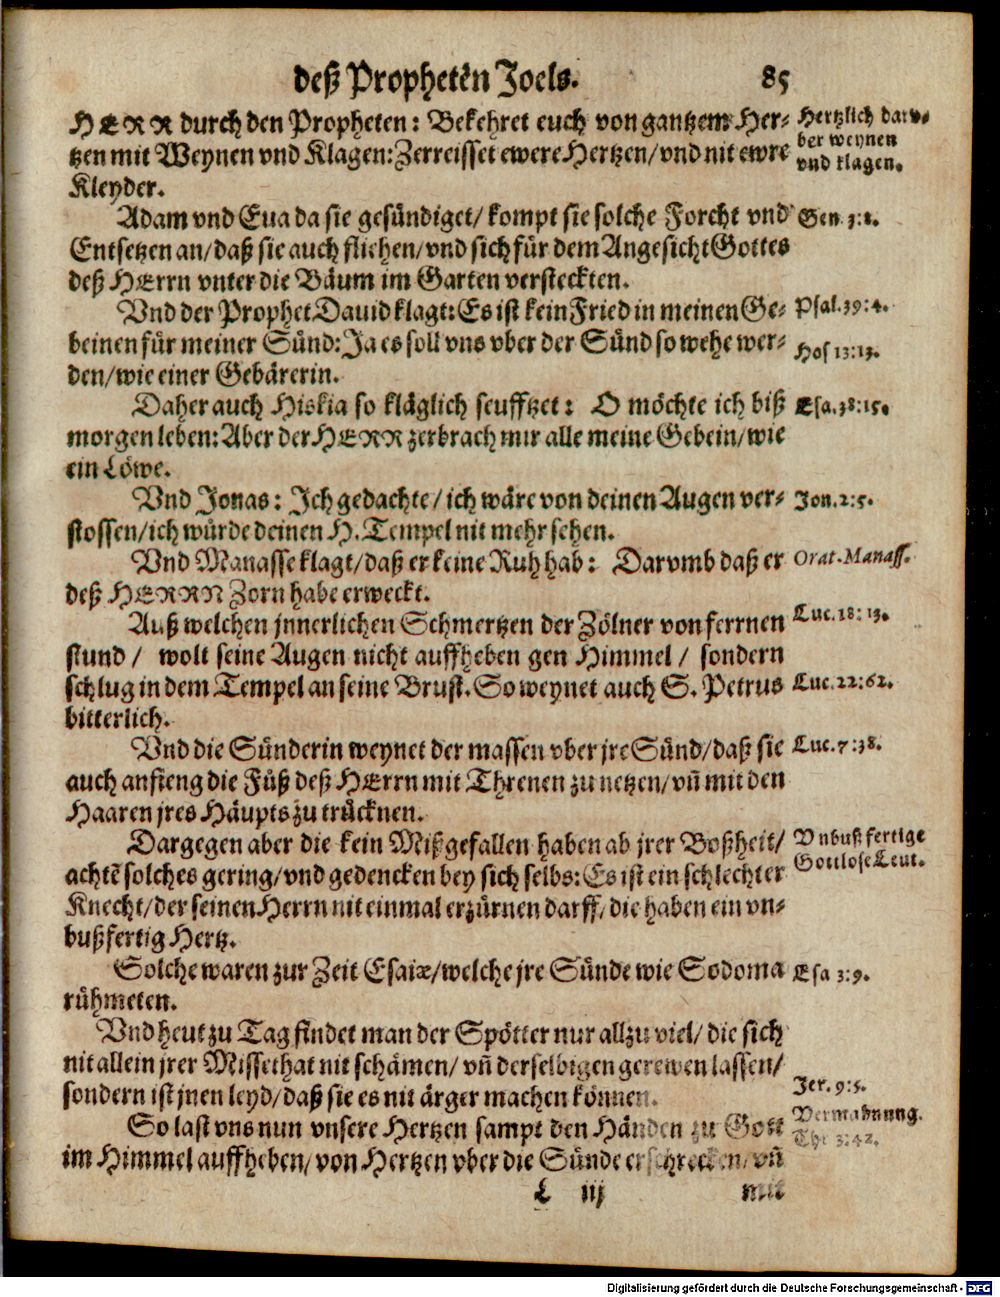 deß Propheten Joels. 85
HERR durch den Propheten: Bekehret euch von gantzem Her-
tzen mit Weynen vnd Klagen: Zerreisset ewere Hertzen/ vnd nit ewre
Kleyder.
Hertzlich darü-
ber weynen
vnd klagen.
Adam vnd Eua da sie gesündiget/ kompt sie solche Forcht vnd
Gen 3:8.
Entsetzen an/ daß sie auch fliehen/ vnd sich für dem Angesicht Gottes
deß HErrn vnter die Bäum im Garten versteckten.
Vnd der Prophet Dauid klagt: Es ist kein Fried in meinen Ge-
Psal. 39:4.
beinen für meiner Sünd: Ja es soll vns vber der Sünd so wehe wer-
Hos 13:13.
den/ wie einer Gebärerin.
Daher auch Hiskia so kläglich seufftzet: O möchte ich biß
Esa. 38:15.
morgen leben: Aber der HERR zerbrach mir alle meine Gebein/ wie
ein Löwe.
Vnd Jonas: Ich gedachte/ ich wäre von deinen Augen ver-
Jon. 2:5.
stossen/ ich würde deinen H. Tempel nit mehr sehen.
Vnd Manasse klagt/ daß er keine Ruh hab: Darvmb daß er
Orat. Manass.
deß HERRN Zorn habe erweckt.
Auß welchen jnnerlichen Schmertzen der Zölner von ferrnen
Luc. 18:13.
stund/ wolt seine Augen nicht auffheben gen Himmel/ sondern
schlug in dem Tempel an seine Brust. So weynet auch S. Petrus
Luc. 22:62.
bitterlich.
Vnd die Sünderin weynet der massen vber jre Sünd/ daß sie
Luc. 7:38.
auch anfieng die Füß deß HErrn mit Threnen zu netzen/ vñ mit den
Haaren jres Häupts zu trücknen.
Dargegen aber die kein Mißgefallen haben ab jrer Boßheit/
Vnbußfertige
achtē solches gering/ vnd gedencken bey sich selbs: Es ist ein schlechter
Gottlose Leut.
Knecht/ der seinen Herrn nit einmal erzürnen darff/ die haben ein vn-
bußfertig Hertz.
Solche waren zur Zeit Esaiæ/ welche jre Sünde wie Sodoma
Esa 3:9.
rühmeten.
Vnd heut zu Tag findet man der Spötter nur allzu viel/ die sich
nit allein jrer Missethat nit schämen/ vñ derselbigen gerewen lassen/
sondern ist jnen leyd/ daß sie es nit ärger machen können.
Jer. 9:5.
So last vns nun vnsere Hertzen sampt den Händen zu Gott
Vermahnung.
Thr 3:42.
im Himmel auffheben/ von Hertzen vber die Sünde erschrecken/ vñ
L iij mit
Digitalisierung gefördert durch die Deutsche Forschungsgemeinschaft - DFG